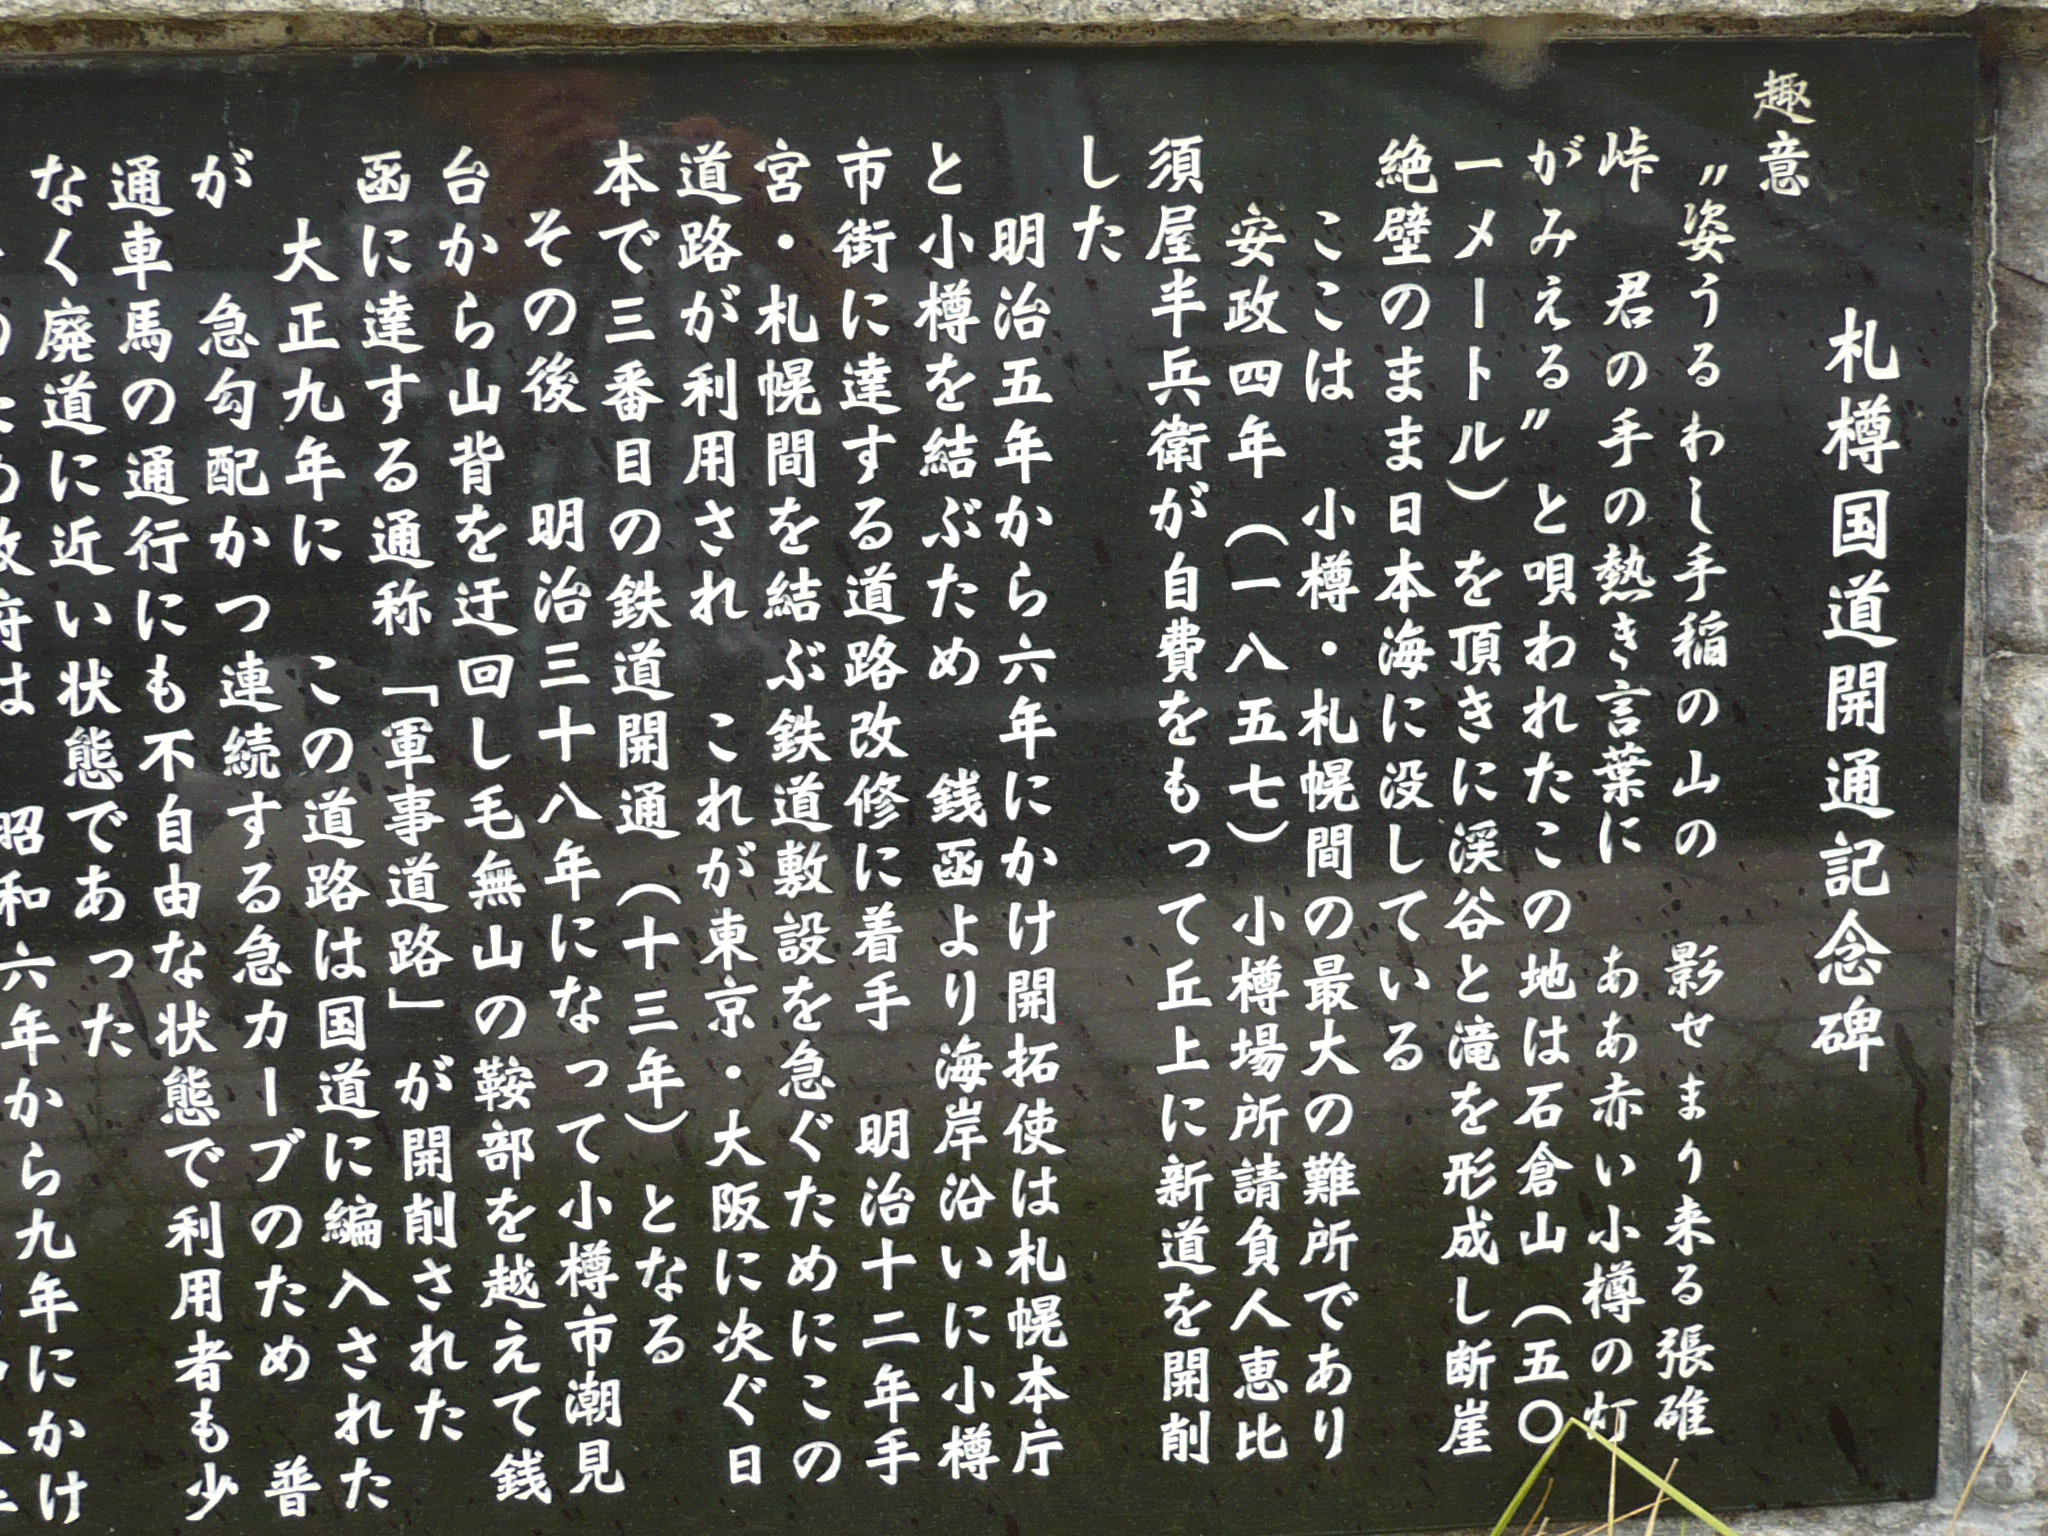 札樽国道開通記念碑
趣意
〃姿うるわし手稲の山の 影せまり来る張碓
峠 君の手の熱き言葉に ああ赤い小樽の灯
がみえる〃と唄われたこの地は石倉山(五〇
一メートル)を頂きに渓谷と滝を形成し断崖
絶壁のまま日本海に没している
ここは 小樽・札幌間の最大の難所であり
安政四年(一八五七)小樽場所請負人恵比
須屋半兵衛が自費をもって丘上に新道を開削
した
明治五年から六年にかけ開拓使は札幌本庁
と小樽を結ぶため 銭函より海岸沿いに小樽
市街に達する道路改修に着手 明治十二年手
宮・札幌間を結ぶ鉄道敷設を急ぐためにこの
道路が利用され これが東京・大阪に次ぐ日
本で三番目の鉄道開通(十三年)となる
その後 明治三十八年になって小樽市潮見
台から山背を迂回し毛無山の鞍部を越えて銭
函に達する通称「軍事道路」が開削された
大正九年に この道路は国道に編入された
が 急勾配かつ連続する急カーブのため 普
通車馬の通行にも不自由な状態で利用者も少
なく廃道に近い状態であった
は 昭和六年から九年にかけ